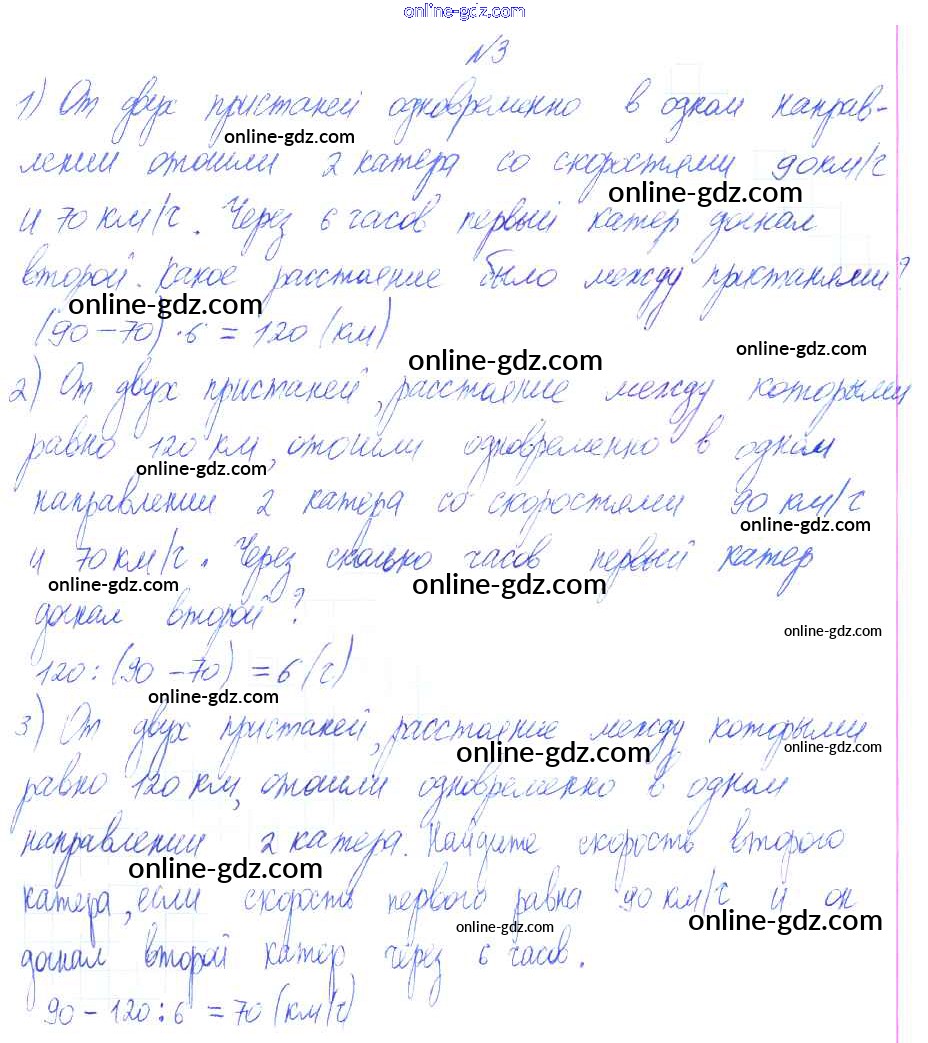 online-gdz.com
№3
1) От двух пристаней одновременно в одном направ-
online-gdz.com
лении отошли 2 катера со скоростями 90 км/ч
online-gdz.com
и 70 км/ч. Через 6 часов первый катер догнал
второй. Какое расстояние было между пристанями?
online-gdz.com
(90 - 70) · 6 = 120 (км)
online-gdz.com
online-gdz.com
2) От двух пристаней, расстояние между которыми
равно 120 км, отошли одновременно в одном
online-gdz.com
направлении 2 катера со скоростями 90 км/ч
online-gdz.com
и 70 км/ч. Через сколько часов первый катер
online-gdz.com
online-gdz.com
догнал второй?
online-gdz.com
120 : (90 - 70) = 6 (ч)
online-gdz.com
3) От двух пристаней, расстояние между которыми
online-gdz.com
online-gdz.com
равно 120 км, отошли одновременно в одном
направлении 2 катера. Найдите скорость второго
online-gdz.com
катера, если скорость первого равна 90 км/ч и он
online-gdz.com
online-gdz.com
догнал второй катер через 6 часов.
90 - 120 : 6 = 70 (км/ч)